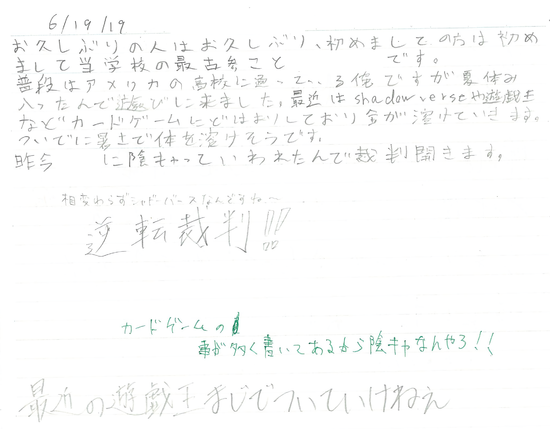 6/19/19
お久しぶりの人はお久しぶり、初めましての方は初め
まして当学校の最古参こと です。
普段はアメリカの高校に通っている俺ですが夏休み
入ったんで遊びに来ました。最近はshadowverseや遊戯王
などカードゲームにどはまりしており金が溶けていきます。
ついでに暑さで体を溶けそうです。
昨今 に陰キャっていわれたんで裁判開きます。
相変わらずシャドーバースなんどすな〜
逆転裁判!!!
カードゲームの
事が多く書いてあるから陰キャなんやろ!!
最近の遊戯王まじでついていけねえ